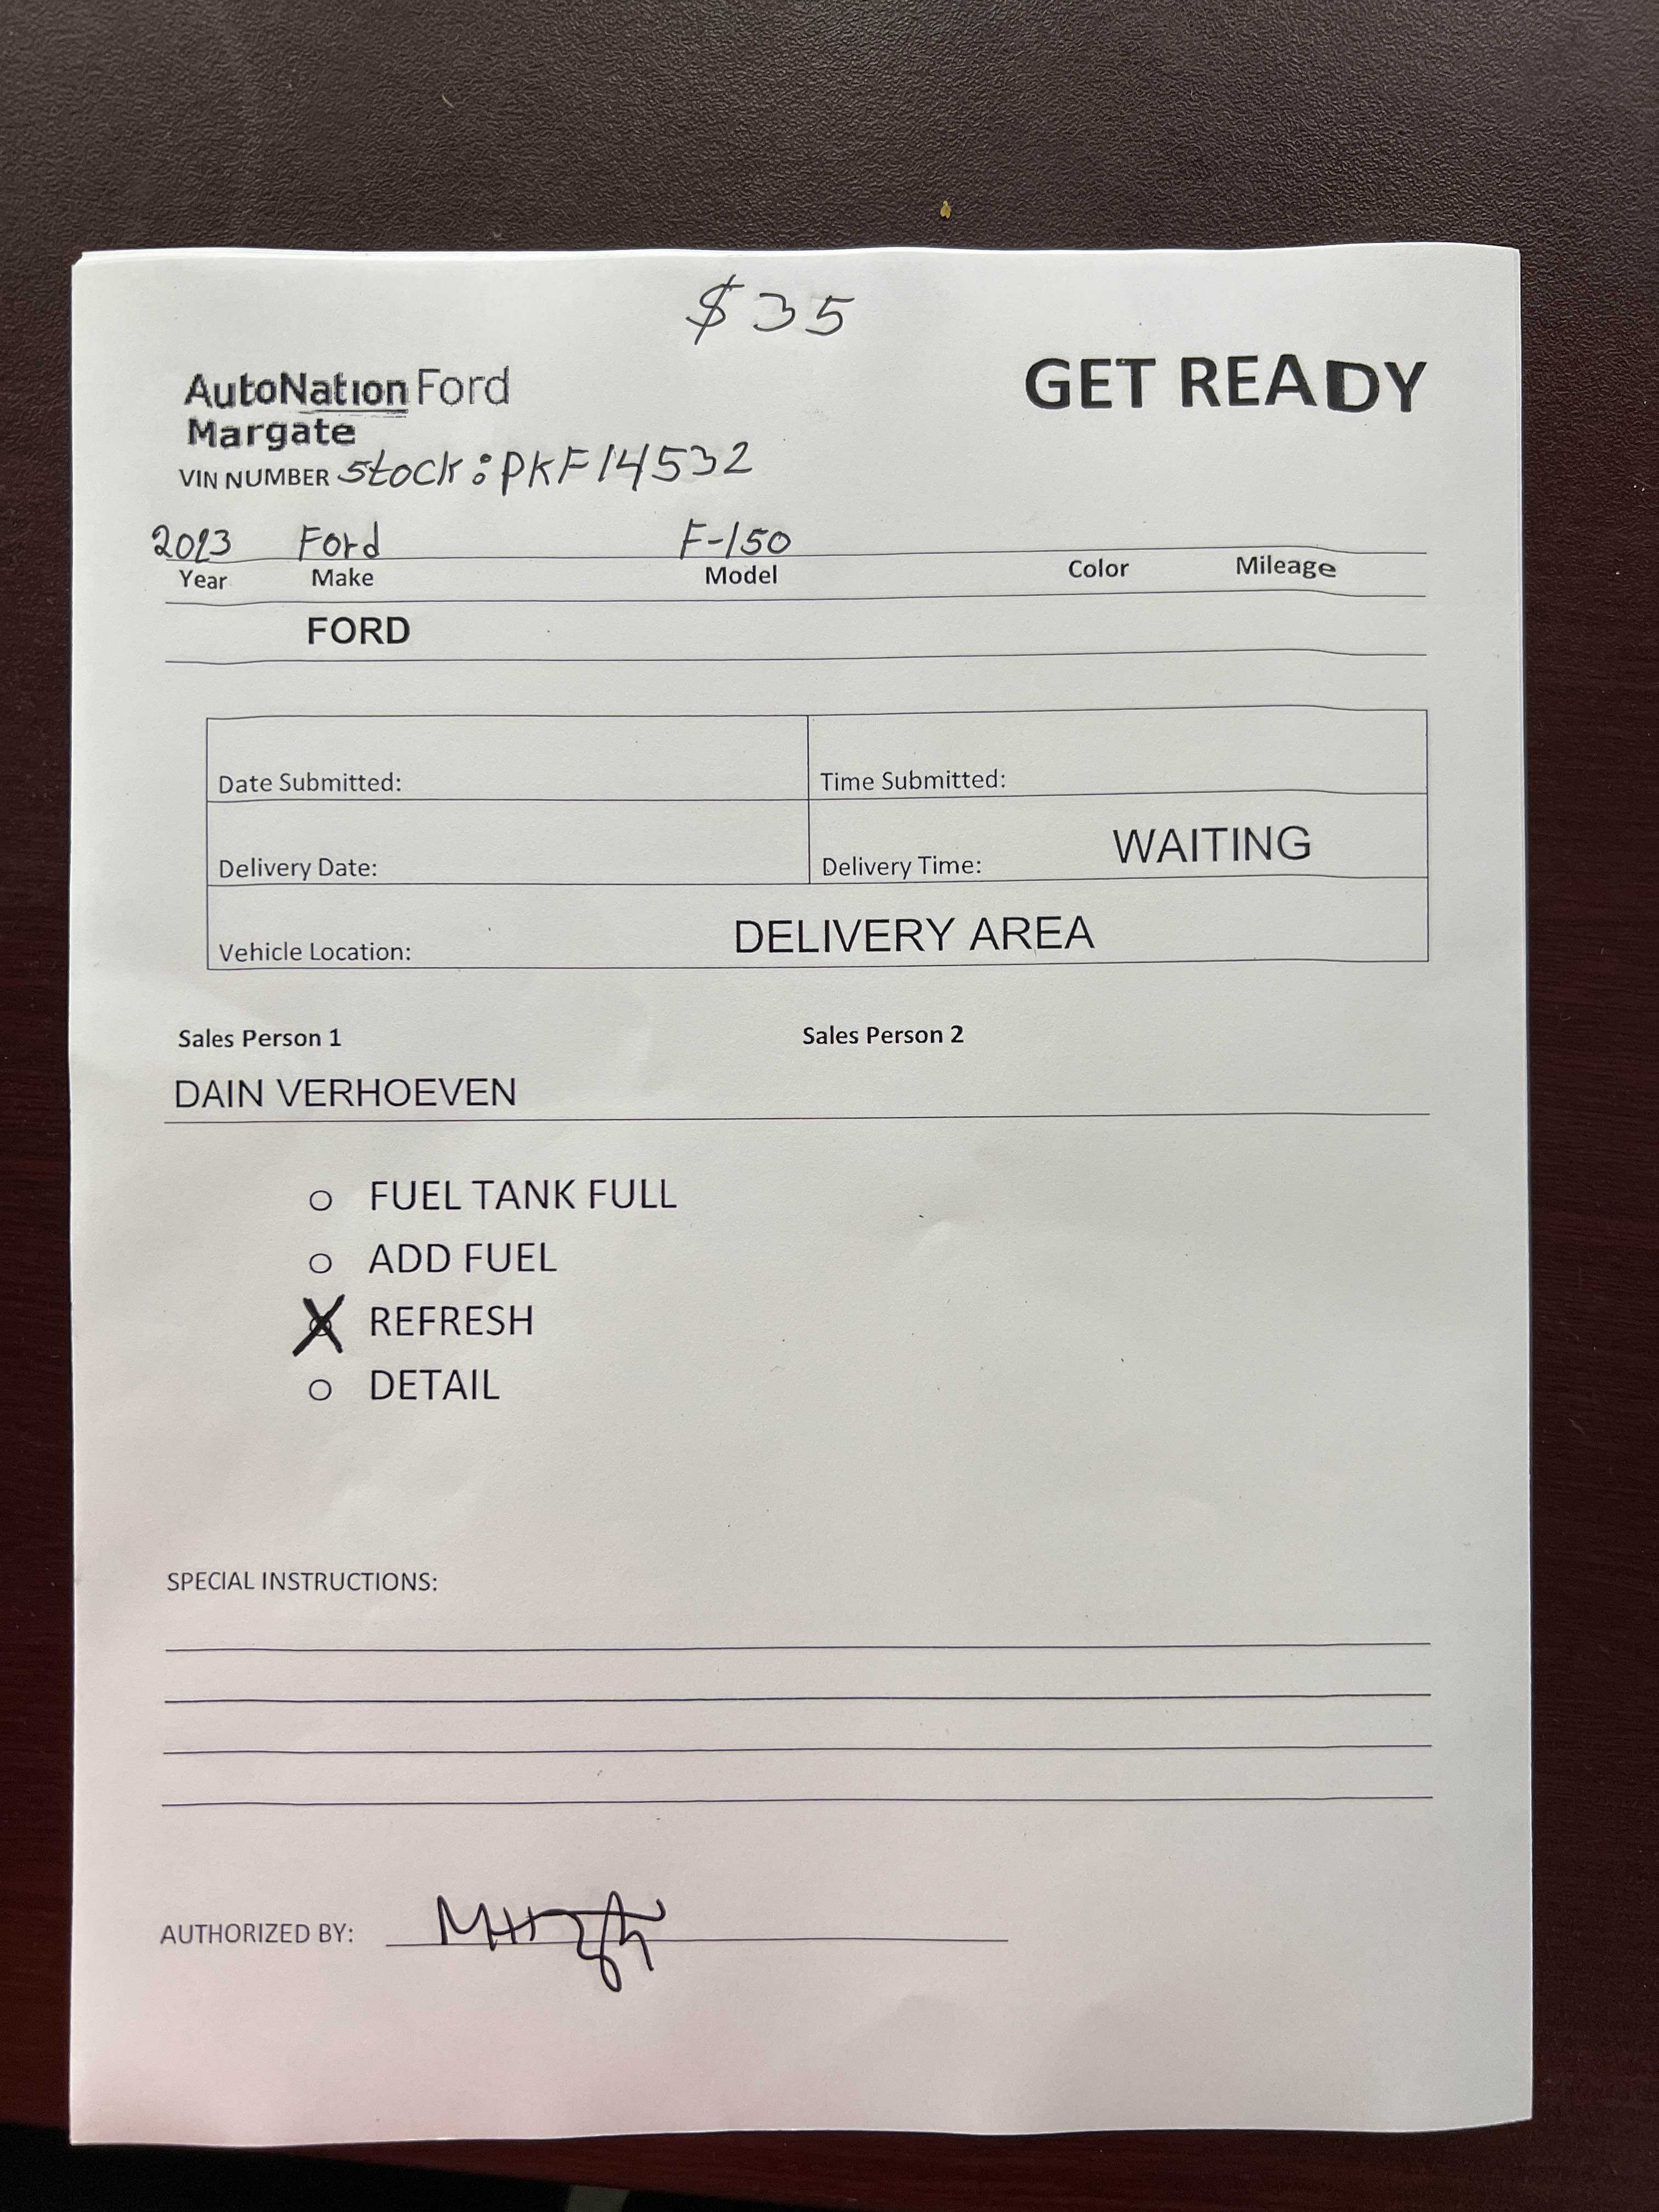 $35
AutoNation Ford
Margate
GET READY
VIN NUMBER stock: PKF14532
2013 Ford F-150
Year Make Model Color Mileage
FORD
Date Submitted: Time Submitted:
Delivery Date: Delivery Time: WAITING
Vehicle Location: DELIVERY AREA
Sales Person 1 Sales Person 2
DAIN VERHOEVEN
o FUEL TANK FULL
o ADD FUEL
X REFRESH
o DETAIL
SPECIAL INSTRUCTIONS:
AUTHORIZED BY: